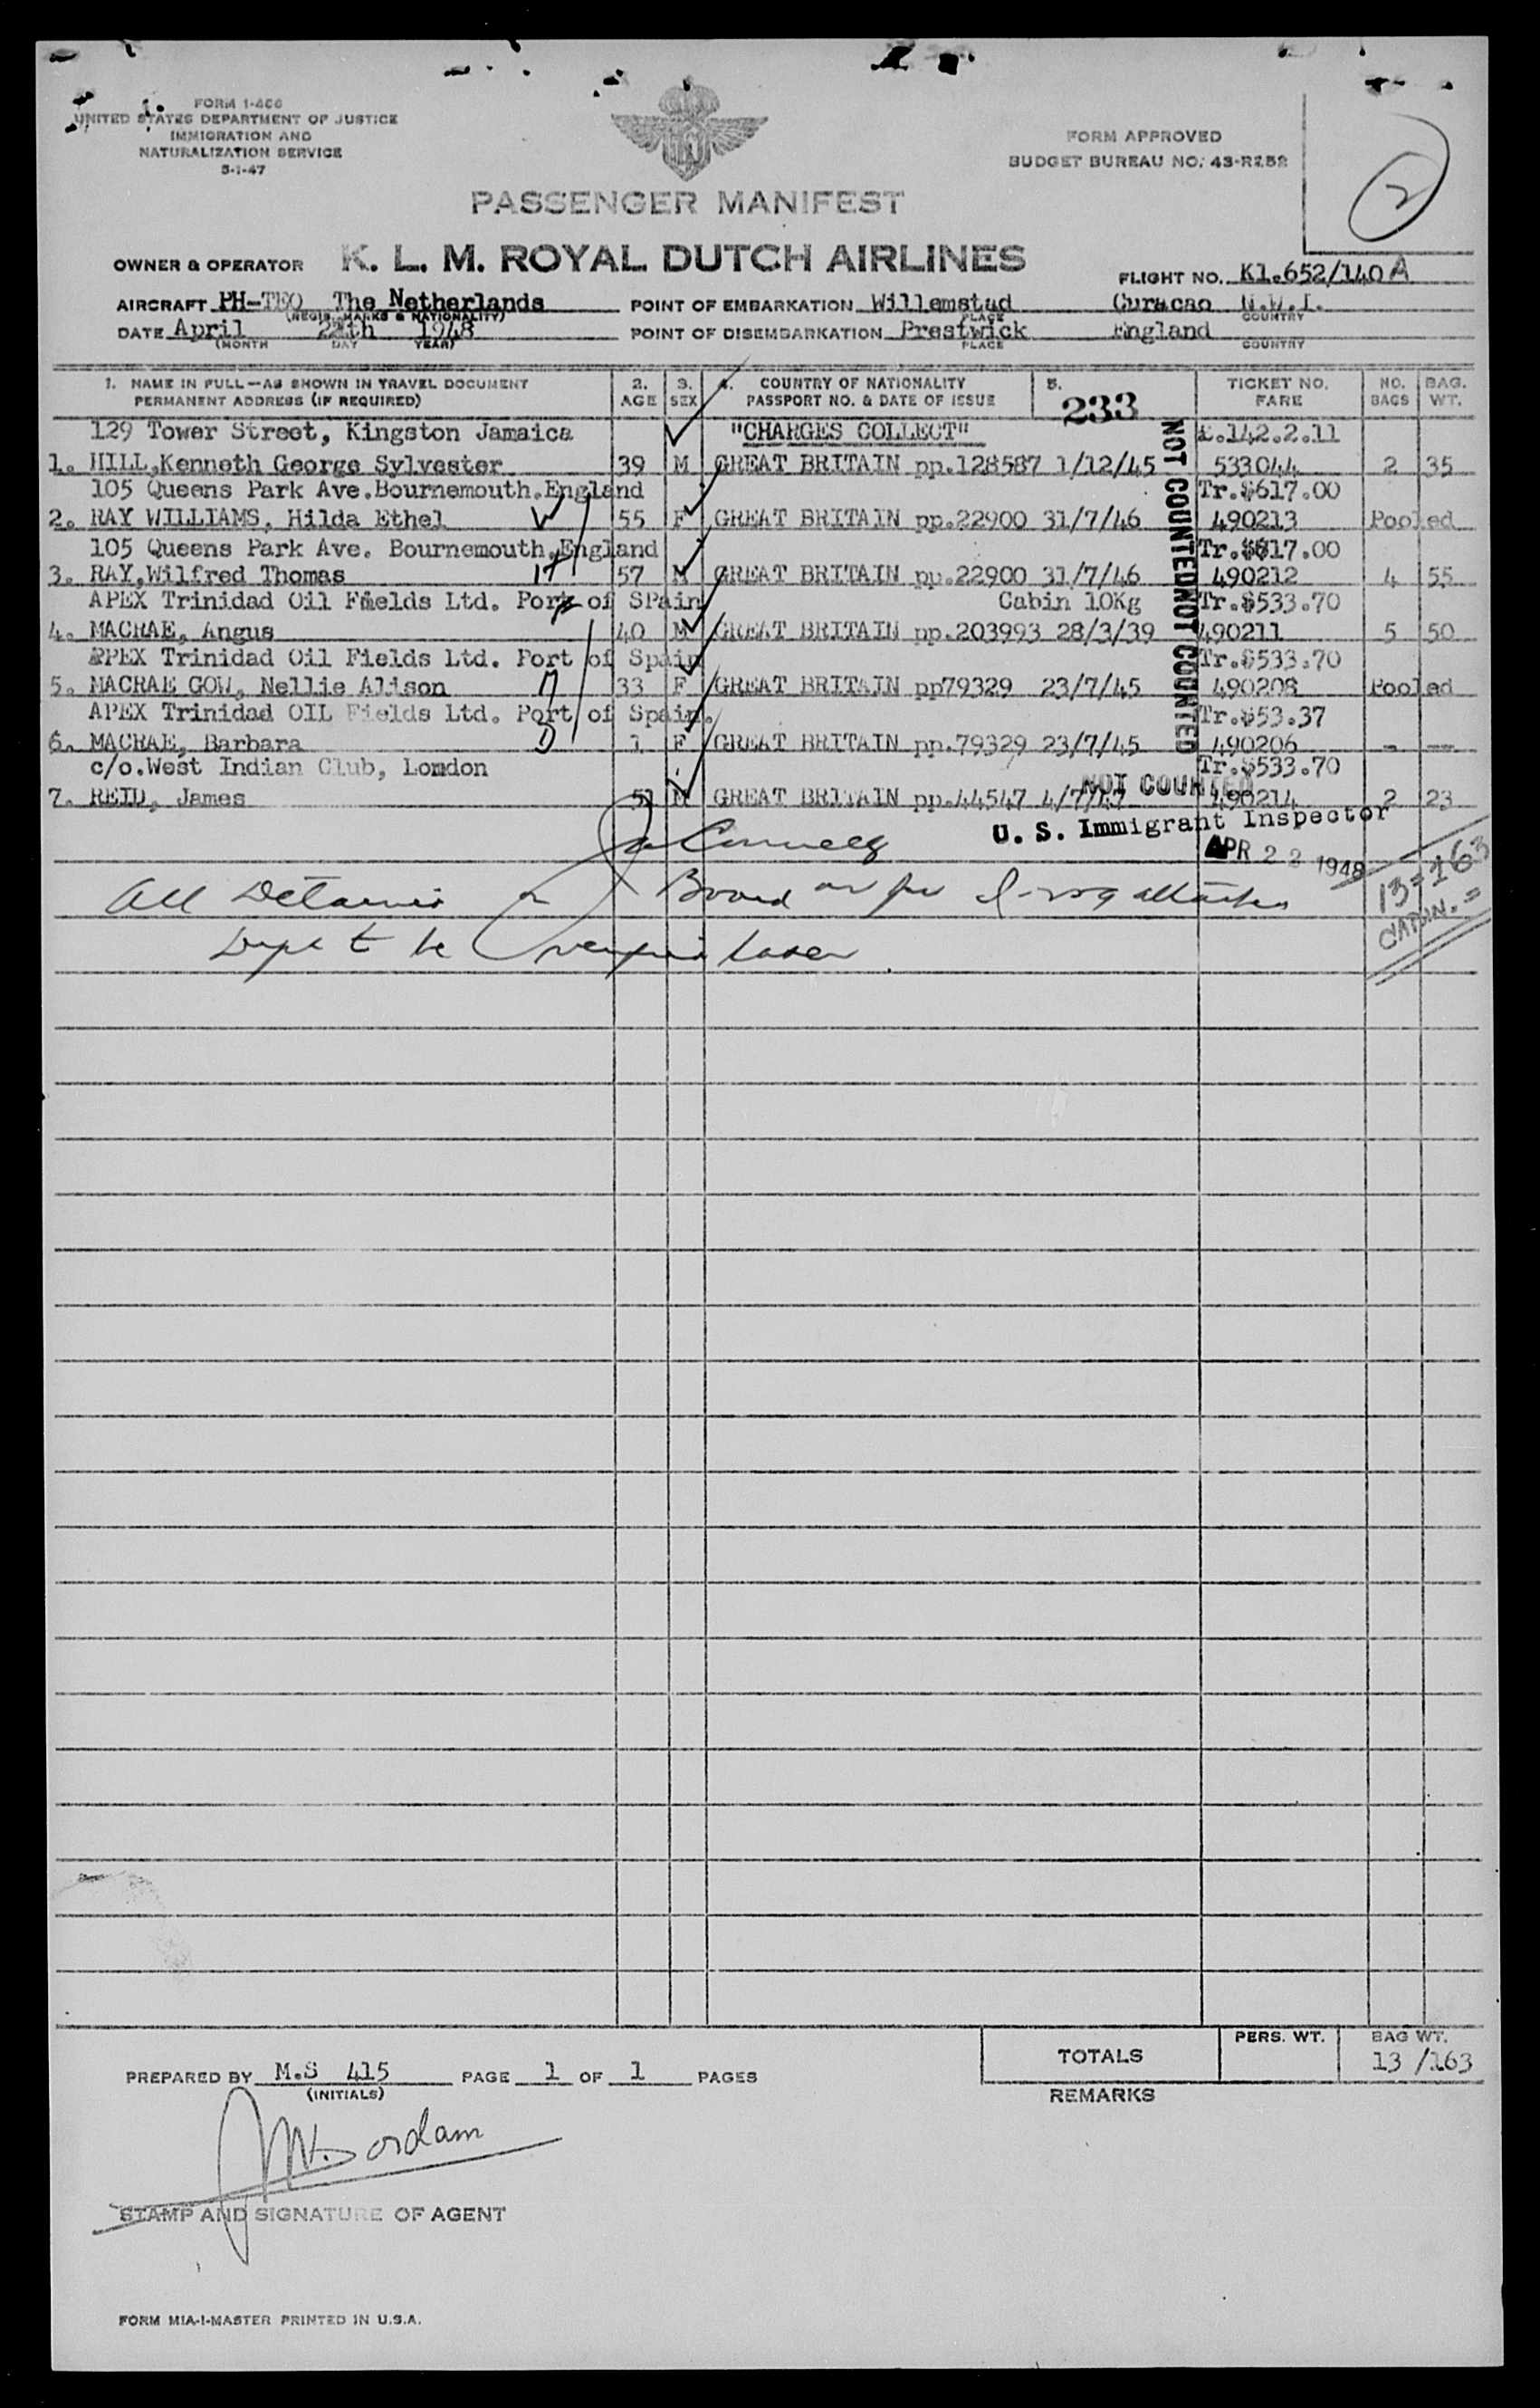 FORM I-466
UNITED STATES DEPARTMENT OF JUSTICE
IMMIGRATION AND
NATURALIZATION SERVICE
5-1-47
FORM APPROVED
BUDGET BUREAU NO. 43-R252
2
PASSENGER MANIFEST
OWNER & OPERATOR K. L. M. ROYAL DUTCH AIRLINES
FLIGHT NO. Kl.652/140 A
AIRCRAFT PH-TEO The Netherlands POINT OF EMBARKATION Willemstad Curacao N.W.I.
(REGIS. MARKS & NATIONALITY) PLACE COUNTRY
DATE April 1948 POINT OF DISEMBARKATION Prestwick England
(MONTH DAY YEAR) PLACE COUNTRY
1. NAME IN FULL—AS SHOWN IN TRAVEL DOCUMENT 2. 3. 4. COUNTRY OF NATIONALITY 5. TICKET NO. NO. BAG.
PERMANENT ADDRESS (IF REQUIRED) AGE SEX PASSPORT NO. & DATE OF ISSUE 233 FARE BAGS WT.
129 Tower Street, Kingston Jamaica "CHARGES COLLECT" £.142.2.11
1. HILL,Kenneth George Sylvester 39 M GREAT BRITAIN pp.128587 1/12/45 533044 2 35
105 Queens Park Ave.Bournemouth.England Tr.$617.00
2. RAY WILLIAMS, Hilda Ethel W 55 F GREAT BRITAIN pp.22900 31/7/46 490213 Pooled
105 Queens Park Ave. Bournemouth.England Tr.$617.00
3. RAY,Wilfred Thomas H 57 M GREAT BRITAIN pp.22900 31/7/46 490212 4 55
APEX Trinidad Oil Fields Ltd. Port of SPain Cabin 10Kg Tr.$533.70
4. MACRAE, Angus 40 M GREAT BRITAIN pp.203993 28/3/39 490211 5 50
APEX Trinidad Oil Fields Ltd. Port of Spain Tr.$533.70
5. MACRAE GOW, Nellie Alison 33 F GREAT BRITAIN pp79329 23/7/45 490208 Pooled
APEX Trinidad OIL Fields Ltd. Port of Spain. Tr.$53.37
6. MACRAE, Barbara D 1 F GREAT BRITAIN pp.79329 23/7/45 490206 - --
c/o.West Indian Club, London Tr.$533.70
7. REID, James 51 M GREAT BRITAIN pp.44547 4/7/47 490214 2 23
NOT COUNTED
NOT COUNTED
NOT COUNTED
U. S. Immigrant Inspector
APR 22 1948
13=163
All
Board
to be later.
PREPARED BY M.S 415 PAGE 1 OF 1 PAGES
(INITIALS)
TOTALS PERS. WT. BAG WT.
13 /163
REMARKS
STAMP AND SIGNATURE OF AGENT
FORM MIA-I-MASTER PRINTED IN U.S.A.